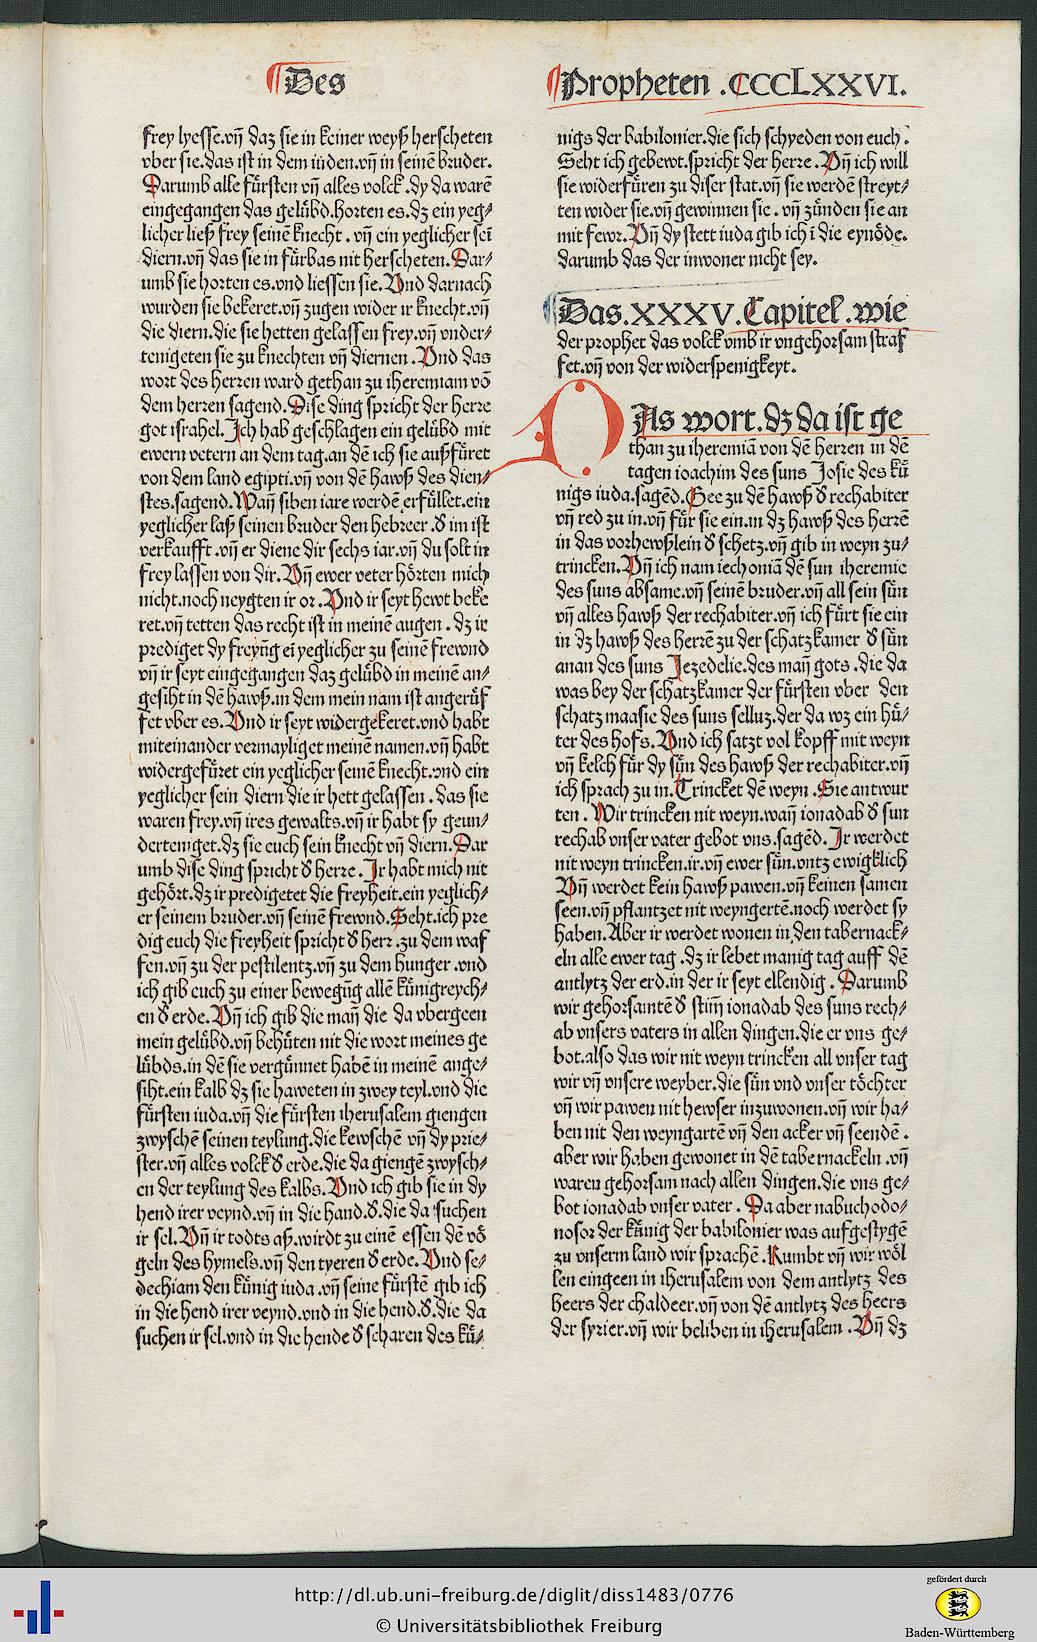 Des
Propheten .CCCLXXVI.
frey lyesse.vñ daz sie in keiner weyß herscheten
vber sie.das ist in dem iuden.vñ in seinē bruder.
Darumb alle fürsten vñ alles volck.dy da warē
eingegangen das gelübd.horten es.dz ein yeg⸗
licher ließ frey seinē knecht. vñ ein yeglicher sei
diern.vñ das sie in fürbas nit herscheten. Dar⸗
umb sie horten es.vnd liessen sie. Vnd darnach
wurden sie bekeret.vñ zugen wider ir knecht.vñ
die diern.die sie hetten gelassen frey.vñ vnder⸗
tenigeten sie zu knechten vñ diernen. Vnd das
wort des herren ward gethan zu iheremiam vō
dem herren sagend. Dise ding spricht der herre
got israhel. Ich hab geschlagen ein gelübd mit
ewern vetern an dem tag.an dē ich sie außfüret
von dem land egipti.vñ von dē hawß des dien⸗
stes.sagend. Wañ siben iare werdē erfüllet.ein
yeglicher laß seinen bruder den hebreer.ð im ist
verkaufft.vñ er diene dir sechs iar.vñ du solt in
frey lassen von dir. Vñ ewer veter hörten mich
nicht.noch neygten ir or. Vnd ir seyt hewt beke
ret.vñ tetten das recht ist in meinē augen. dz ir
prediget dy freyūg ei yeglicher zu seinē frewnd
vñ ir seyt eingegangen daz gelübd in meinē an⸗
gesiht in dē hawß.in dem mein nam ist angerüf
fet vber es. Vnd ir seyt widergekeret.vnd habt
miteinander vermayliget meinē namen.vñ habt
widergefüret ein yeglicher seinē knecht.vnd ein
yeglicher sein diern die ir hett gelassen. das sie
waren frey.vñ ires gewalts.vñ ir habt sy geun⸗
derteniget.dz sie euch sein knecht vñ diern. Dar
umb dise ding spricht ð herre. Ir habt mich nit
gehört.dz ir predigetet die freyheit.ein yeglich⸗
er seinem bruder.vñ seinē frewnd. Seht.ich pre
dig euch die freyheit spricht ð herr.zu dem waf
fen.vñ zu der pestilentz.vñ zu dem hunger.vnd
ich gib euch zu einer bewegūg allē künigreych⸗
en ð erde. Vñ ich gib die mañ die da vbergeen
mein gelübd.vñ behüten nit die wort meines ge
lübds.in dē sie vergünnet habē in meinē ange⸗
siht.ein kalb dz sie haweten in zwey teyl.vnd die
fürsten iuda.vñ die fürsten iherusalem giengen
zwyschē seinen teylung.die kewschē vñ dy prie⸗
ster.vñ alles volck ð erde.die da giengē zwysch⸗
en der teylung des kalbs. Vnd ich gib sie in dy
hend irer veynd.vñ in die hand.ð.die da suchen
ir sel. Vñ ir todts aß.wirdt zu einē essen dē vö
geln des hymels.vñ den tyeren ð erde. Vnd se⸗
dechiam den künig iuda.vñ seine fürstē gib ich
in die hend irer veynd.vnd in die hend.ð.die da
suchen ir sel.vnd in die hende ð scharen des kü⸗
nigs der babilonier.die sich schyeden von euch.
Seht ich gebewt.spricht der herre. Vñ ich will
sie widerfüren zu diser stat.vñ sie werdē streyt⸗
ten wider sie.vñ gewinnen sie. vñ zünden sie an
mit fewr. Vñ dy stett iuda gib ich ī die eynöde.
darumb das der inwoner nicht sey.
Das.XXXV.Capitel.wie
der prophet das volck vmb ir vngehorsam straf
fet.vñ von der widerspenigkeyt.
DAs wort.dz da ist ge
than zu iheremiā von dē herren in dē
tagen ioachim des suns Josie des kü
nigs iuda.sagēd. Gee zu dē hawß ð rechabiter
vñ red zu in.vñ für sie ein.in dz hawß des herrē
in das vorhewßlein ð schetz.vñ gib in weyn zu⸗
trincken. Vñ ich nam iechoniā dē sun iheremie
des suns absame.vñ seinē bruder.vñ all sein sün
vñ alles hawß der rechabiter.vñ ich fürt sie ein
in dz hawß des herrē zu der schatzkamer ð sün
anan des suns Jezedelie.des mañ gots.die da
was bey der schatzkamer der fürsten vber den
schatz maasie des suns selluz.der da wz ein hü⸗
ter des hofs. Vnd ich satzt vol kopff mit weyn
vñ kelch für dy sün des hawß der rechabiter.vñ
ich sprach zu in. Trincket dē weyn. Sie antwur
ten. Wir trincken nit weyn.wañ ionadab ð sun
rechab vnser vater gebot vns.sagēd. Ir werdet
nit weyn trincken.ir.vñ ewer sün.vntz ewigklich
Vñ werdet kein hawß pawen.vñ keinen samen
seen.vñ pflantzet nit weyngertē.noch werdet sy
haben. Aber ir werdet wonen in den tabernack⸗
eln alle ewer tag.dz ir lebet manig tag auff dē
antlytz der erd.in der ir seyt ellendig. Darumb
wir gehorsamtē ð stim̄ ionadab des suns rech⸗
ab vnsers vaters in allen dingen.die er vns ge⸗
bot.also das wir nit weyn trincken all vnser tag
wir vñ vnsere weyber.die sün vnd vnser töchter
vñ wir pawen nit hewser inzuwonen.vñ wir ha⸗
ben nit den weyngartē vñ den acker vñ seendē.
aber wir haben gewonet in dē tabernackeln.vñ
waren gehorsam nach allen dingen.die vns ge⸗
bot ionadab vnser vater. Da aber nabuchodo⸗
nosor der künig der babilonier was aufgestygē
zu vnserm land wir sprachē. Kumbt vñ wir wöl
len eingeen in iherusalem von dem antlytz des
heers der chaldeer.vñ von dē antlytz des heers
der syrier.vñ wir beliben in iherusalem. Vñ dz
http://dl.ub.uni-freiburg.de/diglit/diss1483/0776
© Universitätsbibliothek Freiburg
gefördert durch
Baden-Württemberg